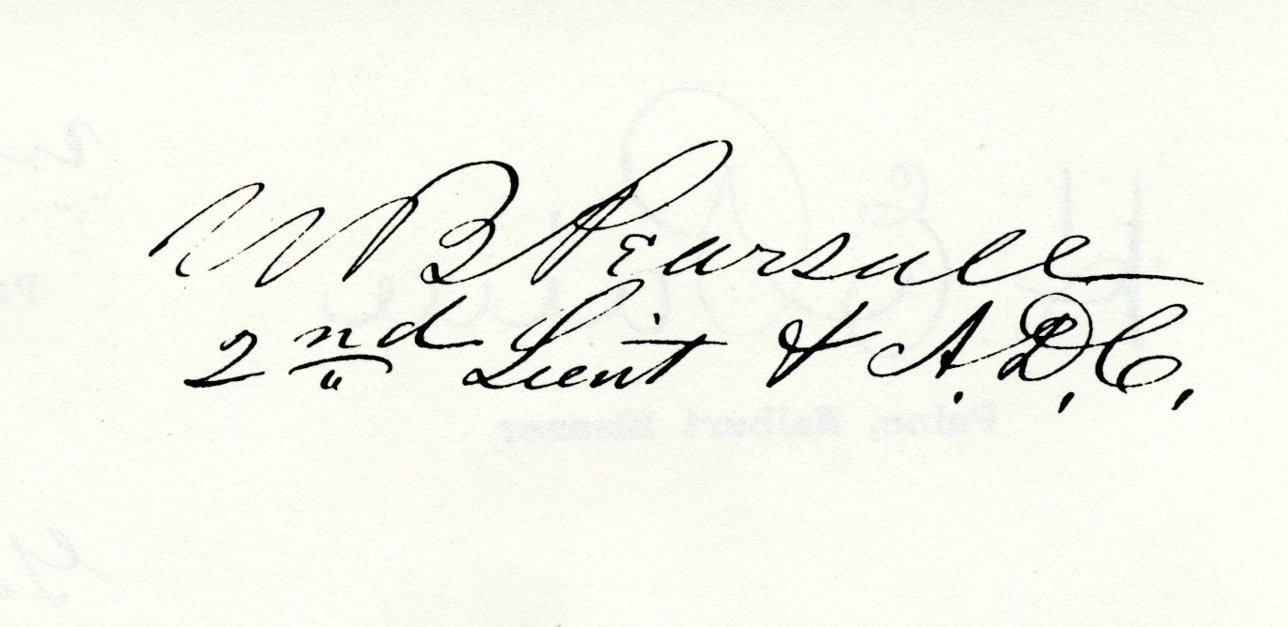 W B Pearsall
2nd Lieut & A.D.C.